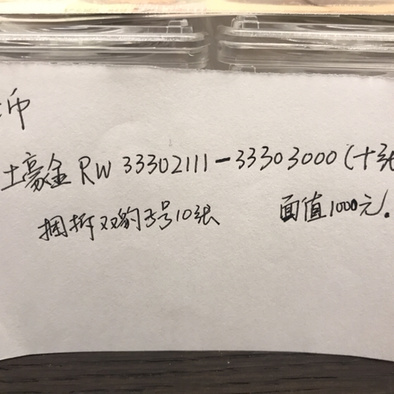 币
土豪金 RW 33302111-33303000(十张
捆拆双豹子号10张 面值1000元.